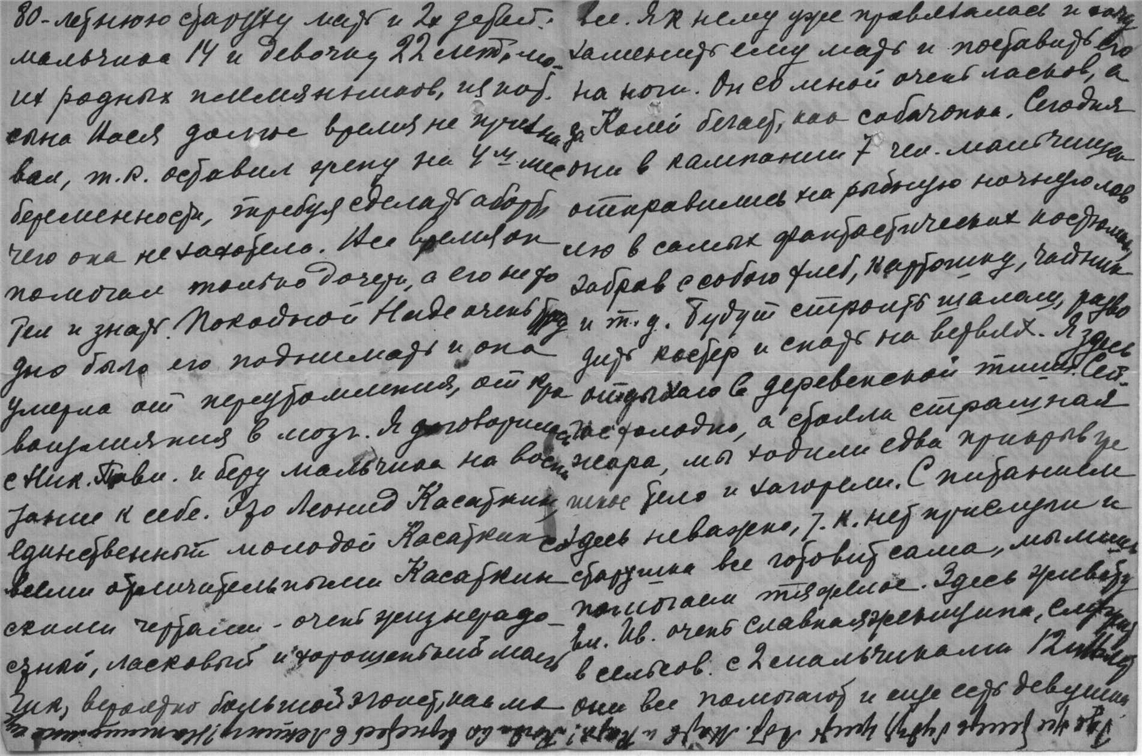 80-летнюю старуху мать и 2х детей:
мальчика 14 и девочку 22 лет, мо-
их родных племянников,
сына Кася долгое время не призна
вал, т.к. оставил жену на 4м мес
беременности, требуя сделать аборт,
чего она не захотела. Все время он
помогал только дочери, а его не хо
тел и знать. Покойной Наде очень тру
дно было его поднимать и она
умерла от переутомления, от кро
воизлияния в мозг. Я договорилась
с Ник. Павл. и беру мальчика на воспи
тание к себе. Это Леонид Касаткин,
единственный молодой Касаткин со
всеми отличительными Касаткин
скими чертами - очень жизнерадо-
стный, ласковый и хорошенький маль
чик, вероятно большой эгоист, как
все. Я к нему уже привязалась и хочу
заменить ему мать и поставить его
на ноги. Он со мной очень ласков, а
за Колей бегает, как собачонка. Сегодня
они в кампании 7 чел. мальчишек
отправились на рыбную ночную лов
лю в самых фантастических костюмах,
забрав с собою хлеб, картошку, чайник
и т.д. Будут строить шалаш, разво
дить костер и спать на ветвях. Я здесь
отдыхаю в деревенской тиши. Сей-
час холодно, а стояла страшная
жара, мы ходили едва прикрыв
тело и загорели. С питанием
здесь неважно, т.к. нет прислуги и
старушка все готовит сама, мы лишь
помогаем. Здесь живет у
Вл. Ив. очень славная женщина,
с 2 мальчиками 12 и
они все помогают и еще есть девушка